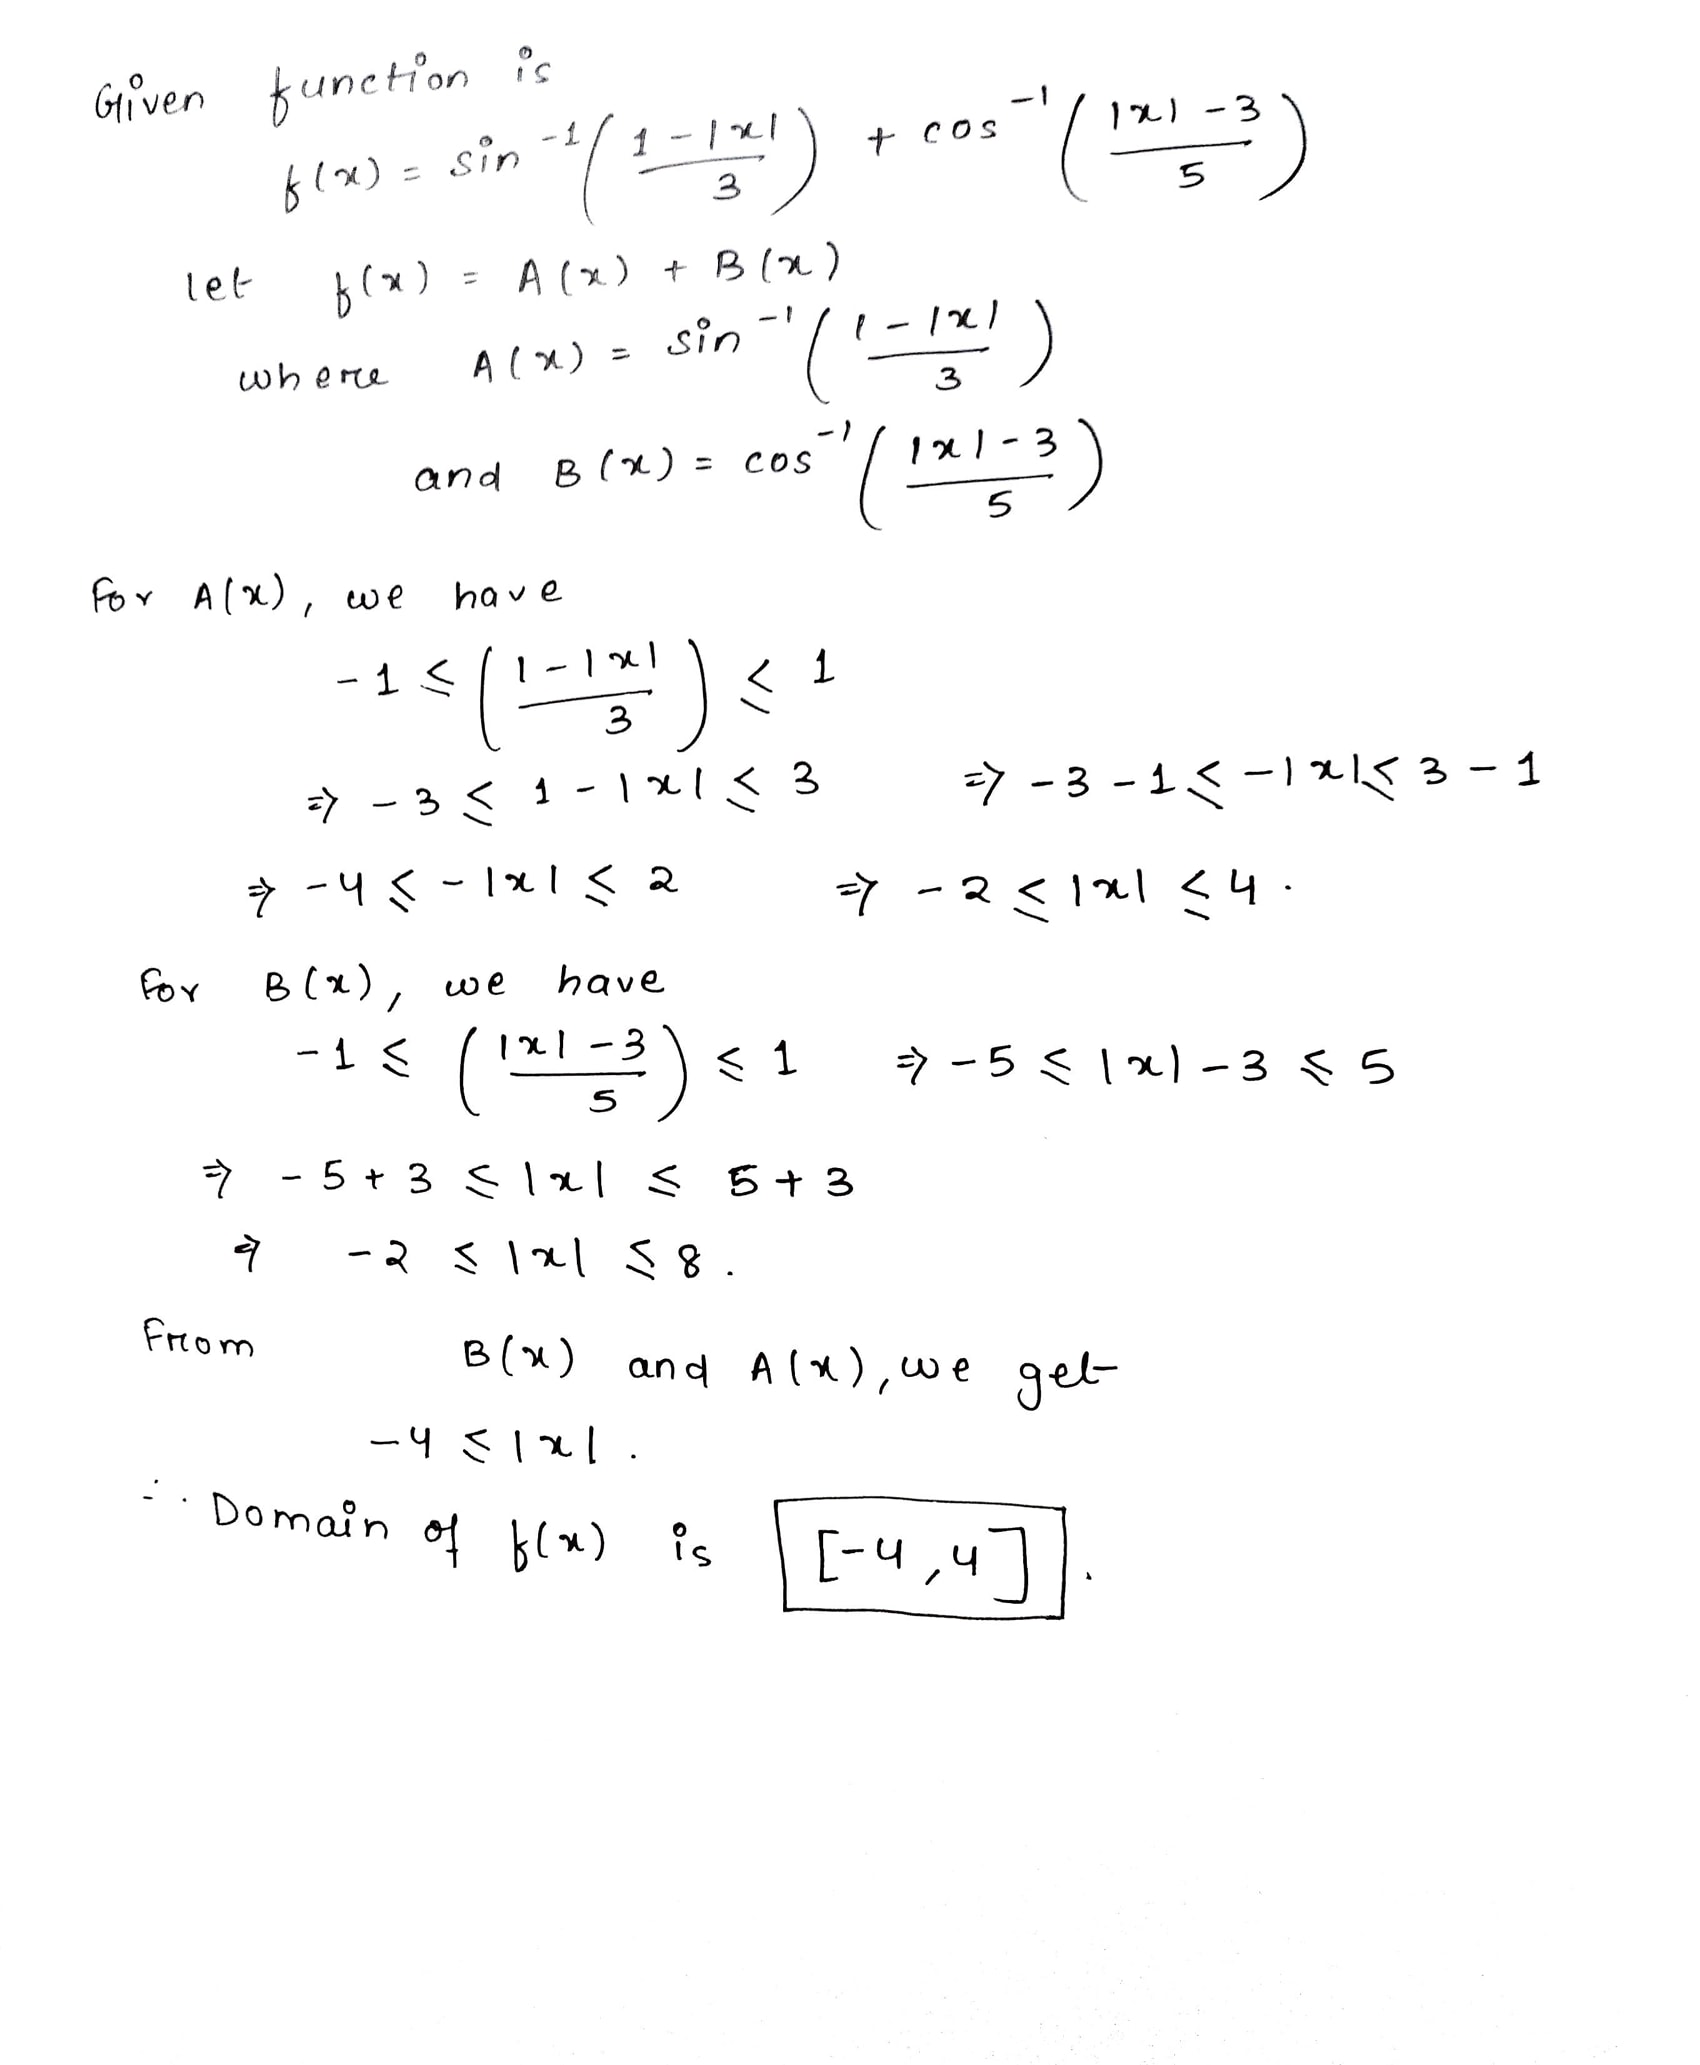 Given function is
f(x) = sin⁻¹((1-|x|)/3) + cos⁻¹((|x|-3)/5)
let f(x) = A(x) + B(x)
where A(x) = sin⁻¹((1-|x|)/3)
and B(x) = cos⁻¹((|x|-3)/5)
For A(x), we have
-1 ≤ ((1-|x|)/3) ≤ 1
⇒ -3 ≤ 1-|x| ≤ 3 ⇒ -3-1 ≤ -|x| ≤ 3-1
⇒ -4 ≤ -|x| ≤ 2 ⇒ -2 ≤ |x| ≤ 4.
For B(x), we have
-1 ≤ ((|x|-3)/5) ≤ 1 ⇒ -5 ≤ |x|-3 ≤ 5
⇒ -5+3 ≤ |x| ≤ 5+3
⇒ -2 ≤ |x| ≤ 8.
From B(x) and A(x), we get
-4 ≤ |x|.
∴ Domain of f(x) is [-4,4].